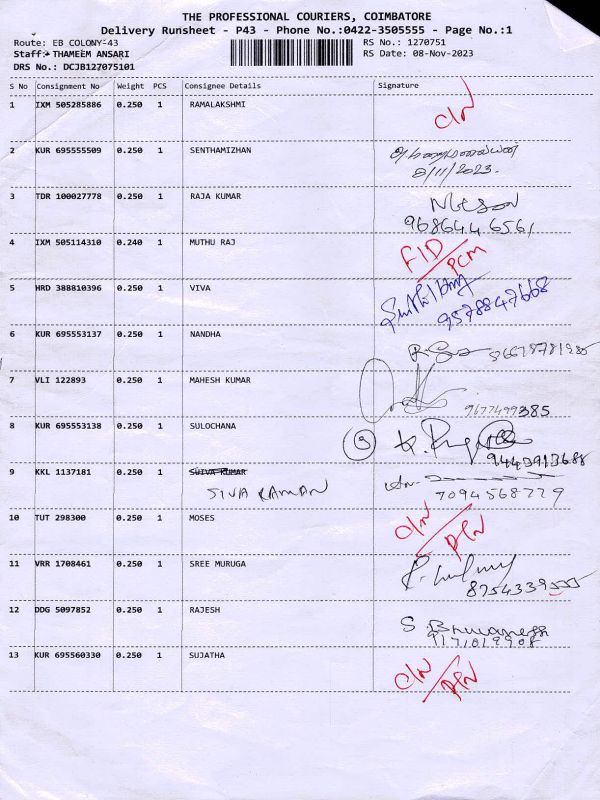 THE PROFESSIONAL COURIERS, COIMBATORE
Delivery Runsheet - P43 - Phone No.:0422-3505555 - Page No.:1
Route: EB COLONY-43 RS No.: 1270751
Staff:- THAMEEM ANSARI RS Date: 08-Nov-2023
DRS No.: DCJB127075101
S No Consignment No Weight PCS Consignee Details Signature
1 IXM 505285886 0.250 1 RAMALAKSHMI C/N
2 KUR 695555509 0.250 1 SENTHAMIZHAN
8/11/2023.
3 TDR 100027778 0.250 1 RAJA KUMAR
9686446561
4 IXM 505114310 0.240 1 MUTHU RAJ FID/PCM
5 HRD 388810396 0.250 1 VIVA
9578847668
6 KUR 695553137 0.250 1 NANDHA
7 VLI 122893 0.250 1 MAHESH KUMAR
9677499385
8 KUR 695553138 0.250 1 SULOCHANA
9443913688
9 KKL 1137181 0.250 1 SUIVA KUMAR
SIVA RAMAN 7094568779
10 TUT 298300 0.250 1 MOSES C/N/D/N
11 VRR 1708461 0.250 1 SREE MURUGA
8754339555
12 DDG 5097852 0.250 1 RAJESH
13 KUR 695560330 0.250 1 SUJATHA C/N/D/N